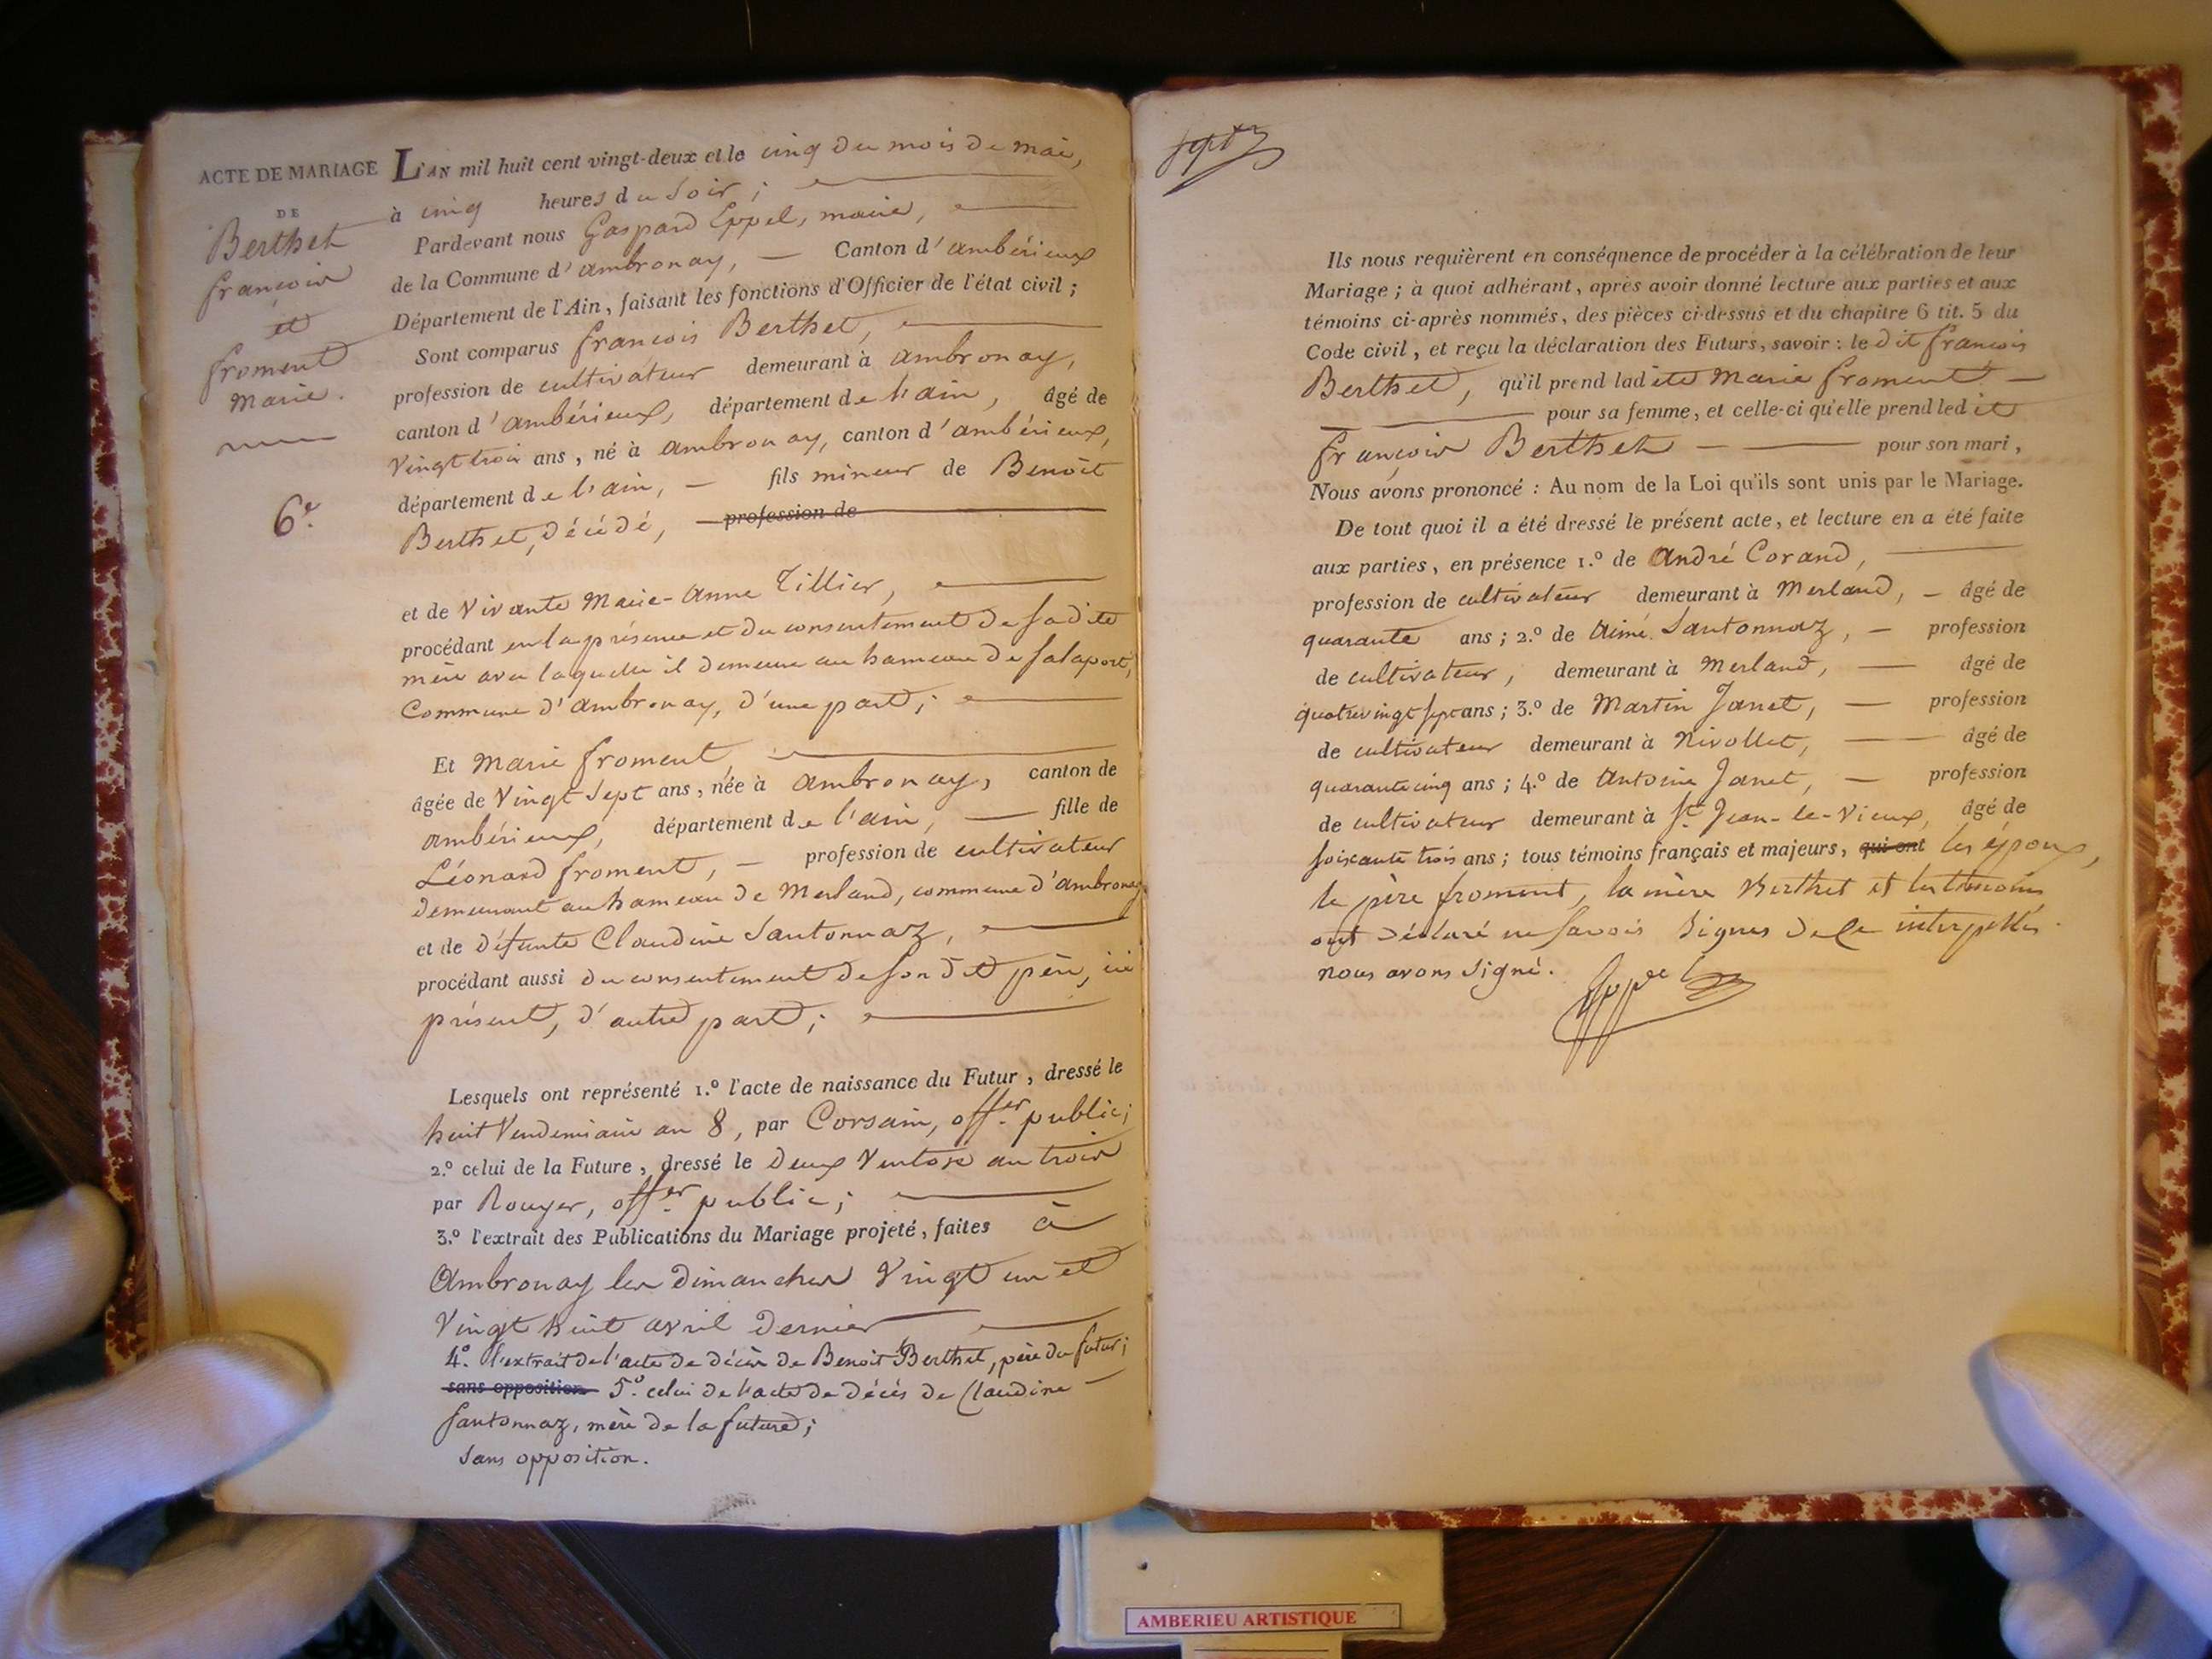 ACTE DE MARIAGE
DE
Berthet
françois
et
froment
marie.
6.e
L'AN mil huit cent vingt-deux et le cinq du mois de mai,
à cinq heures du soir ;
Pardevant nous Gaspard Eppel, maire,
de la Commune d'ambronay, — Canton d'ambérieux
Département de l'Ain, faisant les fonctions d'Officier de l'état civil ;
Sont comparus françois Berthet,
profession de cultivateur demeurant à ambronay,
canton d'ambérieux, département de l'ain, âgé de
Vingt trois ans, né à ambronay, canton d'ambérieux,
département de l'ain, — fils mineur de Benoît
Berthet, décédé, profession de
et de Vivante Marie-Anne Tillier,
procédant en la présence et du consentement de sadite
mère avec laquelle il demeure au hameau de salaport,
Commune d'ambronay, d'une part ;
Et Marie froment,
âgée de Vingt sept ans, née à ambronay, canton de
ambérieux, département de l'ain, — fille de
Léonard froment, — profession de cultivateur
demeurant au hameau de Merland, commune d'ambronay
et de défunte Claudine Santonnaz,
procédant aussi du consentement de son dit père, ici
présent, d'autre part ;
Lesquels ont représenté 1.º l'acte de naissance du Futur, dressé le
huit Vendemiaire an 8, par Corsain, off.er public ;
2.º celui de la Future, dressé le deux Ventose an trois
par Rouyer, off.er public ;
3.º l'extrait des Publications du Mariage projeté, faites à
Ambronay les dimanches Vingt un et
Vingt huit avril dernier
4.º l'extrait de l'acte de décès de Benoît Berthet, père du futur ;
sans opposition 5.º celui de l'acte de décès de Claudine
Santonnaz, mère de la future ;
sans opposition.
sept
Ils nous requièrent en conséquence de procéder à la célébration de leur
Mariage ; à quoi adhérant, après avoir donné lecture aux parties et aux
témoins ci-après nommés, des pièces ci-dessus et du chapitre 6 tit. 5 du
Code civil, et reçu la déclaration des Futurs, savoir : le dit françois
Berthet, qu'il prend ladite Marie froment —
pour sa femme, et celle-ci qu'elle prend ledit
françois Berthet — pour son mari,
Nous avons prononcé : Au nom de la Loi qu'ils sont unis par le Mariage.
De tout quoi il a été dressé le présent acte, et lecture en a été faite
aux parties, en présence 1.º de André Corand,
profession de cultivateur demeurant à Merland, — âgé de
quarante ans ; 2.º de Aimé Santonnaz, — profession
de cultivateur, demeurant à Merland, — âgé de
quatrevingt sept ans ; 3.º de Martin Janet, — profession
de cultivateur demeurant à Nivollet, — âgé de
quarante cinq ans ; 4.º de Antoine Janet, — profession
de cultivateur demeurant à St Jean-le-Vieux, âgé de
soixante trois ans ; tous témoins français et majeurs, qui ont les époux,
le père froment, la mère Berthet et les témoins
ont déclaré ne savoir signer de ce interpellés.
nous avons signé.
Eppel
AMBERIEU ARTISTIQUE